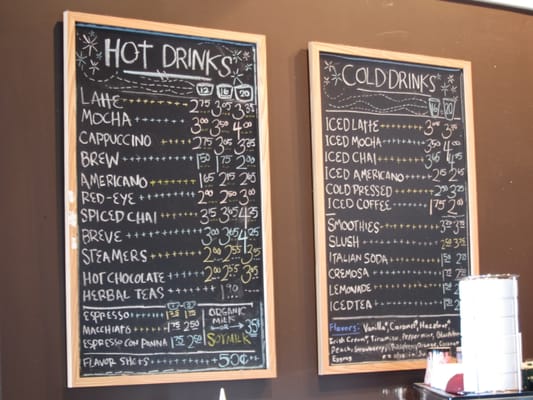 HOT DRINKS
12 16 20
LATTE 2.75 3.05 3.35
MOCHA 3.00 3.50 4.00
CAPPUCCINO 2.75 3.05 3.35
BREW 1.50 1.75 2.00
AMERICANO 1.65 2.15 2.65
RED-EYE 2.00 2.50 3.00
SPICED CHAI 3.15 3.65 4.25
BREVE 3.00 3.65 4.25
STEAMERS 2.00 2.55 3.15
HOT CHOCOLATE 2.00 2.55 3.05
HERBAL TEAS 1.90
ESPRESSO
MACCHIATO 1.75 2.50
ESPRESSO CON PANNA
ORGANIC
MILK
OR
SOY MILK
35¢
FLAVOR SHOTS 50¢
COLD DRINKS
16 20
ICED LATTE 3.05 3.35
ICED MOCHA 3.50 4.00
ICED CHAI 3.65 4.25
ICED AMERICANO 2.15 2.65
COLD PRESSED
ICED COFFEE 1.75 2.00
SMOOTHIES
SLUSH
ITALIAN SODA
CREMOSA
LEMONADE
ICED TEA
Flavors: Vanilla*, Caramel*, Hazelnut*,
Irish Cream*, Tiramisu, Peppermint,
Peach, Strawberry, Raspberry, Orange, Coconut
Eggnog